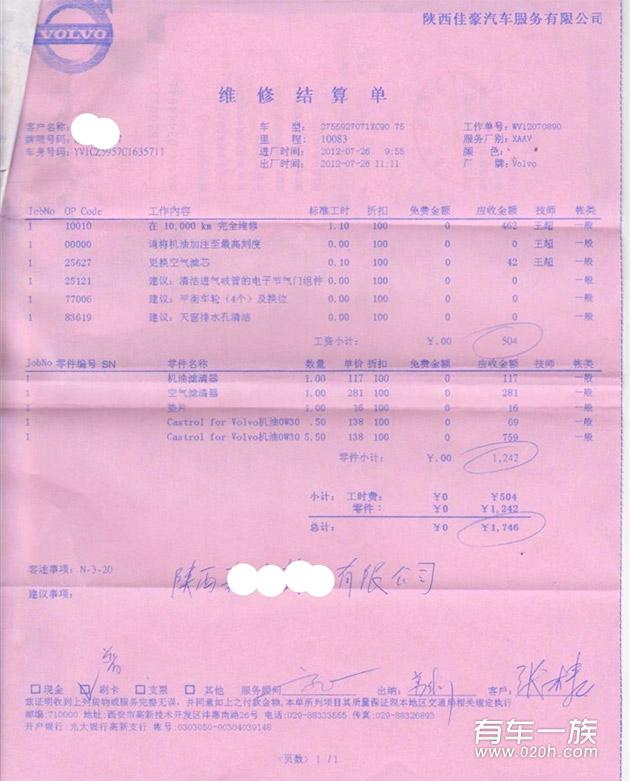 陕西佳豪汽车服务有限公司
VOLVO
维 修 结 算 单
客户名称: 车 型: 2755927071XC90 T5 工作单号: WV12070890
牌照号码: 里 程: 10083 服务厂别: XAAV
车身号码: 进厂时间: 2012-07-26 9:55 颜 色:
出厂时间: 2012-07-26 11:11 厂 牌: Volvo
JobNo OP Code 工作内容 标准工时 折扣 免费金额 应收金额 技师 帐类
1 10010 在 10,000 km 完全维修 1.10 100 0 462 王超 一般
1 00000 请将机油加注至最高刻度 0.00 100 0 0 王超 一般
1 25627 更换空气滤芯 0.10 100 0 42 王超 一般
1 25121 建议:清洁进气歧管的电子节气门组件 0.00 100 0 0 一般
1 77006 建议:平衡车轮(4个)及换位 0.00 100 0 0 一般
1 83619 建议:天窗排水孔清洁 0.00 100 0 0 一般
工资小计: ¥.00 504
JobNo 零件编号 SN 零件名称 数量 单价 折扣 免费金额 应收金额 技师 帐类
1 机油滤清器 1.00 117 100 0 117 一般
1 空气滤清器 1.00 281 100 0 281 一般
1 垫片 1.00 16 100 0 16 一般
1 Castrol for Volvo机油0W30 .50 138 100 0 69 一般
1 Castrol for Volvo机油0W30 5.50 138 100 0 759 一般
零件小计: ¥.00 1,242
小计: 工时费: ¥0 ¥504
零件: ¥0 ¥1,242
总计: ¥0 ¥1,746
客述事项: N-3-20
陕西 有限公司
建议事项:
现金 刷卡 支票 其他 服务顾问 出纳: 客户:
兹证明收到上列货物或服务完整无误,并同意如上之付款金额,本单所列项目其质量保证期本地区交通局相关规定执行
邮编:710000 地址:西安市高新技术开发区沣惠南路26号 电话:029-88333555 传真:029-88326893
开户银行: 光大银行高新支行 帐号: 0303050-00304039148
<页数> 1 / 1
有车一族
www.020h.com